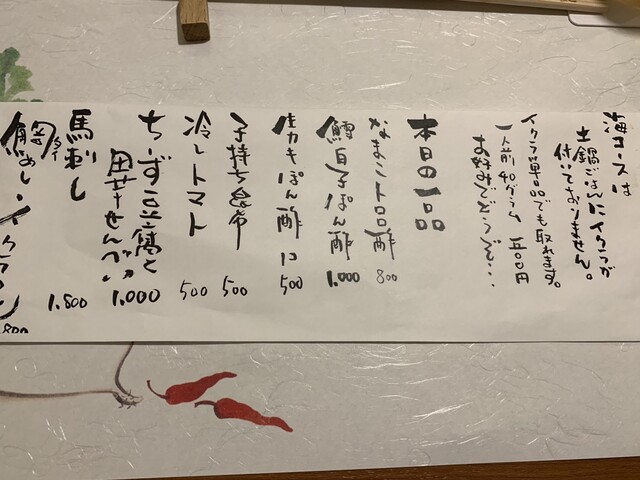 海コースは
土鍋ごはんにイクラが
付いておりません。
イクラ単品でも取れます。
一人前40グラム 五〇〇円
お好みでどうぞ・・・
本日の一品
なまこトロロ酢 800
鱈白子ぽん酢 1.000
生カキぽん酢 1コ 500
子持ち昆布 500
冷しトマト 500
ちーず豆腐と
せんべい 1.000
馬刺し 1.800
タイ
鯛めし・イクラ
800